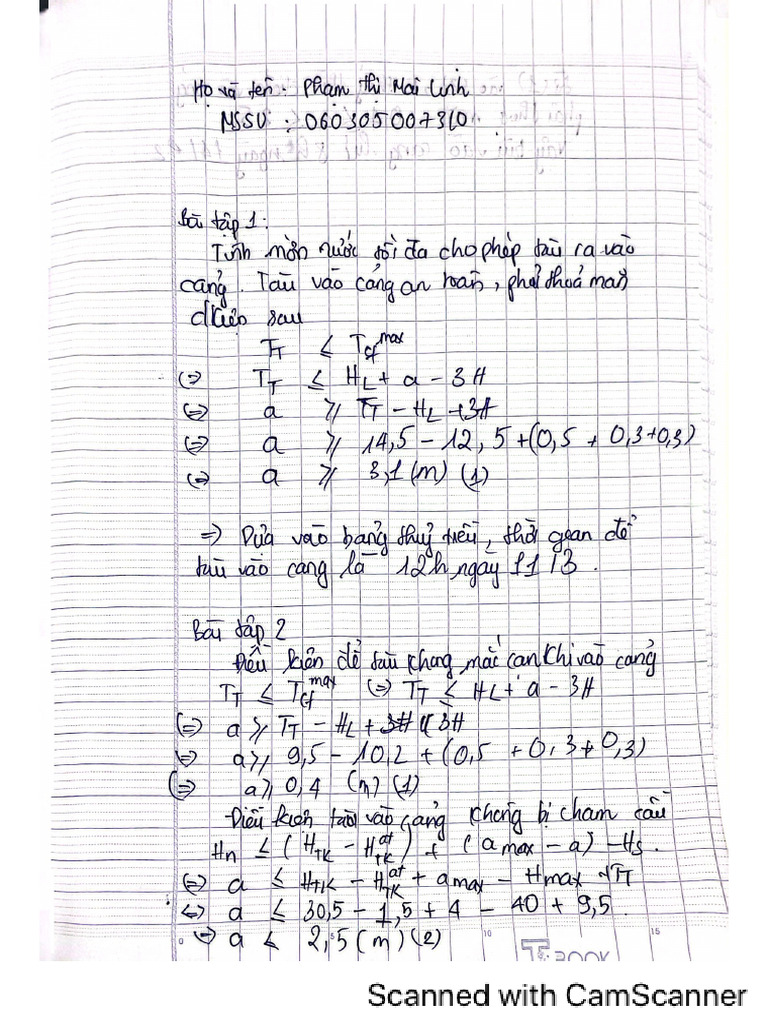 Họ và tên : Phạm Thị Mai Linh
MSSV : 060305007310
Bài tập 1:
Tính mớn nước tối đa cho phép tàu ra vào
cảng. Tàu vào cảng an toàn, phải thoả mãn
đkiện sau
T_T ≤ T_cf^max
(=) T_T ≤ H_L + a - ΣH
(=) a ≥ T_T - H_L + ΣH
(=) a ≥ 14,5 - 12,5 + (0,5 + 0,3+0,3)
(=) a ≥ 3,1 (m) (1)
=) Dựa vào bảng thuỷ triều, thời gian để
tàu vào cảng là 12h ngày 11/3.
Bài tập 2
Điều kiện để tàu không mắc cạn khi vào cảng
T_T ≤ T_cf^max (=) T_T ≤ H_L + a - ΣH
(=) a ≥ T_T - H_L + ΣH
(=) a ≥ 9,5 - 10,2 + (0,5 + 0,3 + 0,3)
(=) a ≥ 0,4 (m) (1)
Điều kiện tàu vào cảng không bị chạm cầu
Hn ≤ (H_TK - H_TK^at) + (a max - a) - Hs.
(=) a ≤ H_TK - H_TK^at + a max - H max + T_T
(=) a ≤ 30,5 - 1,5 + 4 - 40 + 9,5.
=) a ≤ 2,5 (m) (2)
0 5 10 15
BOOK
Scanned with CamScanner